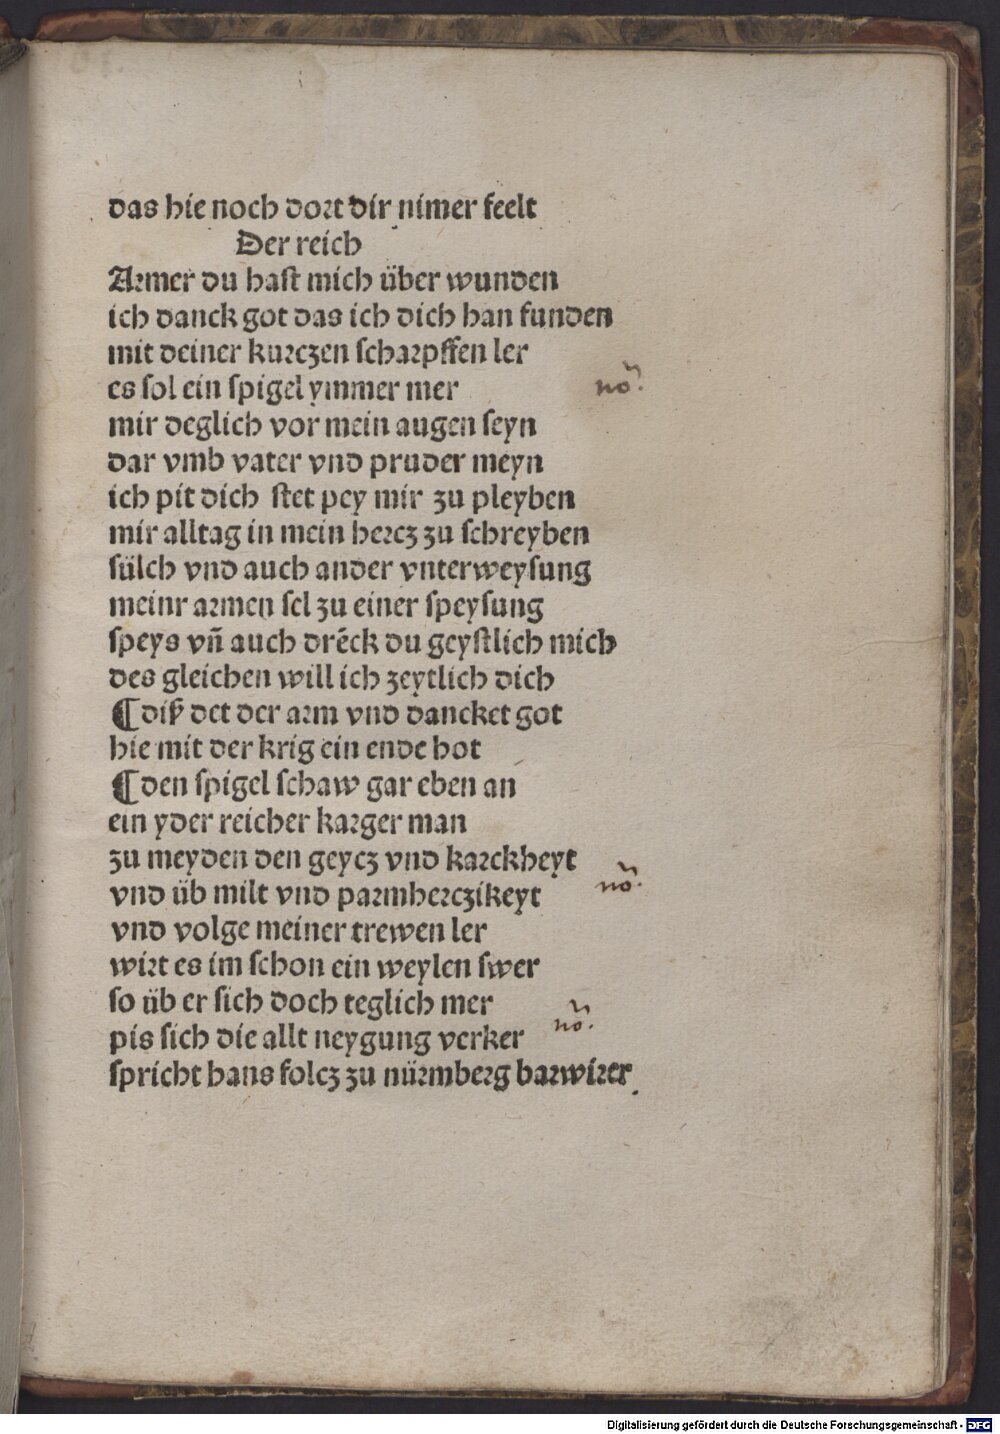 das hie noch dort dir nimer feelt
Der reich
Armer du hast mich über wunden
ich danck got das ich dich han funden
mit deiner kurczen scharpffen ler
es sol ein spigel ymmer mer
no͂.
mir deglich vor mein augen seyn
dar vmb vater vnd pruder meyn
ich pit dich stet pey mir zu pleyben
mir alltag in mein hercz zu schreyben
sülch vnd auch ander vnterweysung
meinr armen sel zu einer speysung
speys vn̄ auch drēck du geystlich mich
des gleichen will ich zeytlich dich
¶ diß det der arm vnd dancket got
hie mit der krig ein ende hot
¶ den spigel schaw gar eben an
ein yder reicher karger man
zu meyden den geycz vnd karckheyt
vnd üb milt vnd parmherczikeyt
no͂.
vnd volge meiner trewen ler
wirt es im schon ein weylen swer
so üb er sich doch teglich mer
no͂.
pis sich die allt neygung verker
spricht hans folcz zu nürmberg barwirer
Digitalisierung gefördert durch die Deutsche Forschungsgemeinschaft - DFG